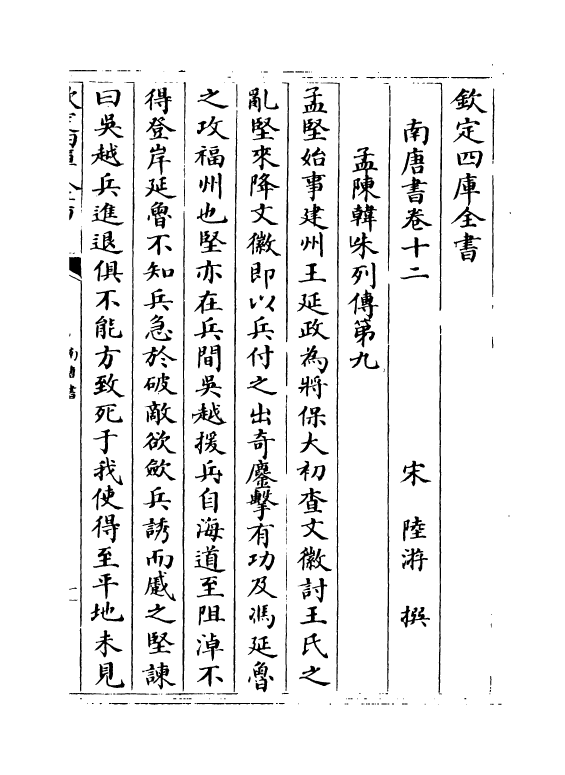 欽定四庫全書
南唐書卷十二
宋 陸游 撰
孟陳韓朱列傳第九
孟堅始事建州王延政為將保大初查文徽討王氏之
亂堅來降文徽即以兵付之出奇鏖擊有功及馮延魯
之攻福州也堅亦在兵間吳越援兵自海道至阻淖不
得登岸延魯不知兵急於破敵欲歛兵誘而蹙之堅諫
曰吳越兵進退俱不能方致死于我使得至平地未見